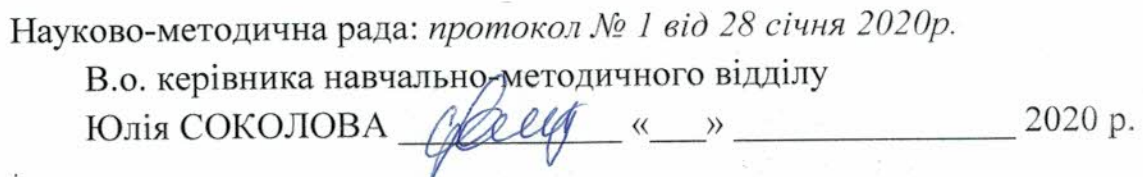 Науково-методична рада: протокол № 1 від 28 січня 2020р.
В.о. керівника навчально-методичного відділу
Юлія СОКОЛОВА ______________ «___» ________________ 2020 р.